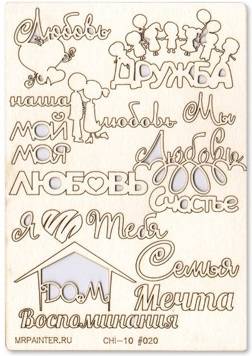 Любовь
ДРУЖБА
наша
любовь
Мы
МОЙ
МОЯ
Любовь
ЛЮБОВЬ
Счастье
Я
Тебя
Семья
ДОМ
Мечта
Воспоминания
MRPAINTER.RU CHI-10 #020